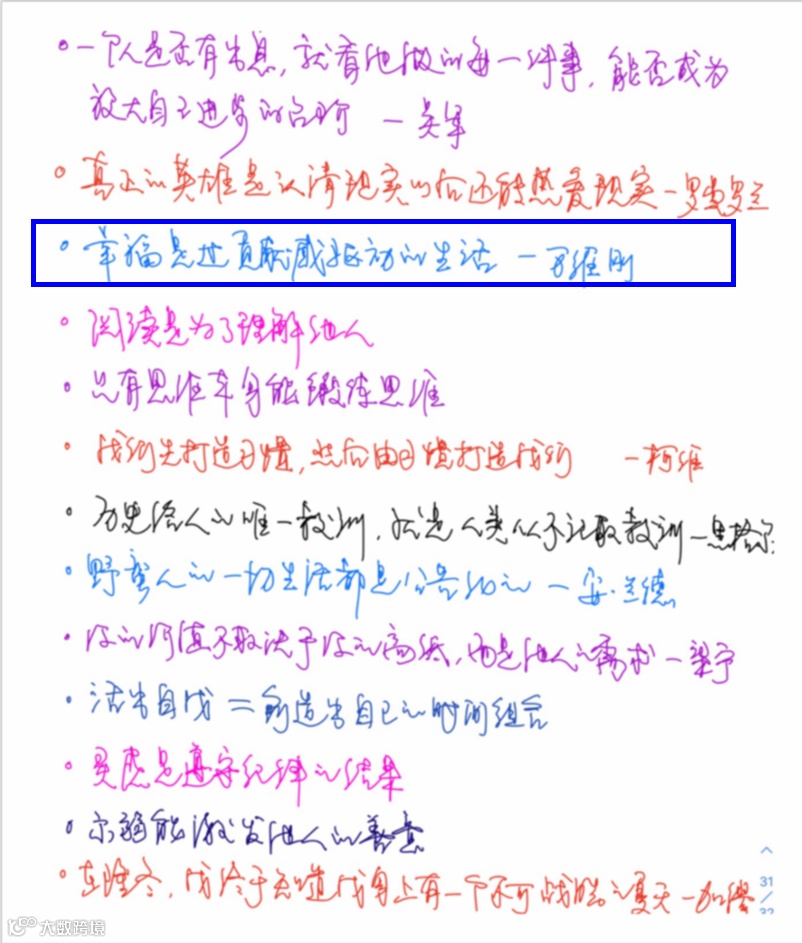 •一个人是否有出息，就看他做的每一件事，能否成为
放大自己进步的台阶 —吴军
•真正的英雄是认清现实以后还能热爱现实—罗曼罗兰
•幸福是过贡献感驱动的生活 —万维刚
•阅读是为了理解他人
•只有思维本身能锻炼思维
•我们先打造习惯，然后由习惯打造我们 —柯维
•历史给人的唯一教训，就是人类从不记取教训—黑格尔
•野蛮人的一切生活都是公共的 —安·兰德
•你的价值不取决于你的高低，而是他人的需求—梁宁
•活出自我 = 创造出自己的时间组合
•灵感是遵守纪律的结果
•示弱能激发他人的善意
•在隆冬，我终于知道我身上有一个不可战胜的夏天—加缪
31
大数跨境